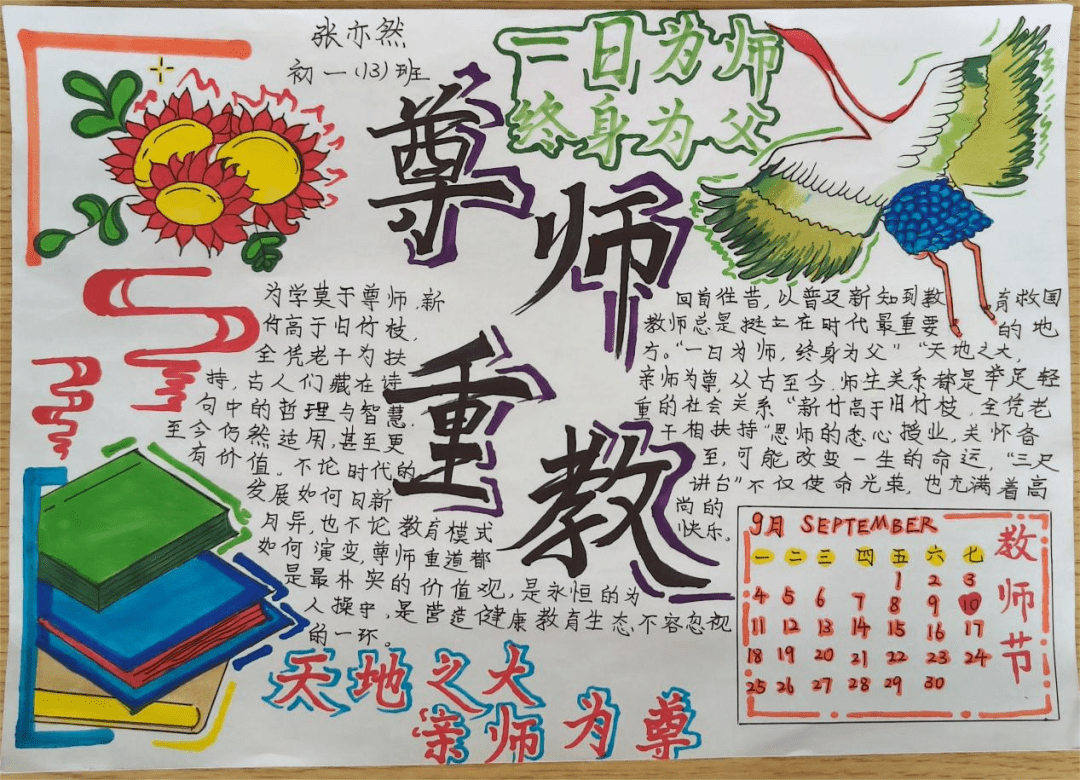 张亦然
初一(13)班
一日为师
终身为父
尊师
重教
为学莫于尊师,新
竹高于旧竹枝,
全凭老干为扶
持,古人们藏在诗
句中的哲理与智慧,
至今仍然适用,甚至更
有价值。不论时代的
发展如何日新
月异,也不论教育模式
如何演变,尊师重道都
是最朴实的价值观,是永恒的为
人操守,是营造健康教育生态不容忽视
的一环。
回首往昔,以普及新知到教育救国
教师总是挺立在时代最重要的地
方。“一日为师,终身为父”“天地之大,
亲师为尊,从古至今,师生关系都是举足轻
重的社会关系“新竹高于旧竹枝,全凭老
干相扶持”恩师的悉心授业,关怀备
至,可能改变一生的命运,“三尺
讲台”不仅使命光荣,也充满着高
尚的
快乐。
9月 SEPTEMBER
一 二 三 四 五 六 七
1 2 3
4 5 6 7 8 9 10
11 12 13 14 15 16 17
18 19 20 21 22 23 24
25 26 27 28 29 30
教师节
天地之大
亲师为尊